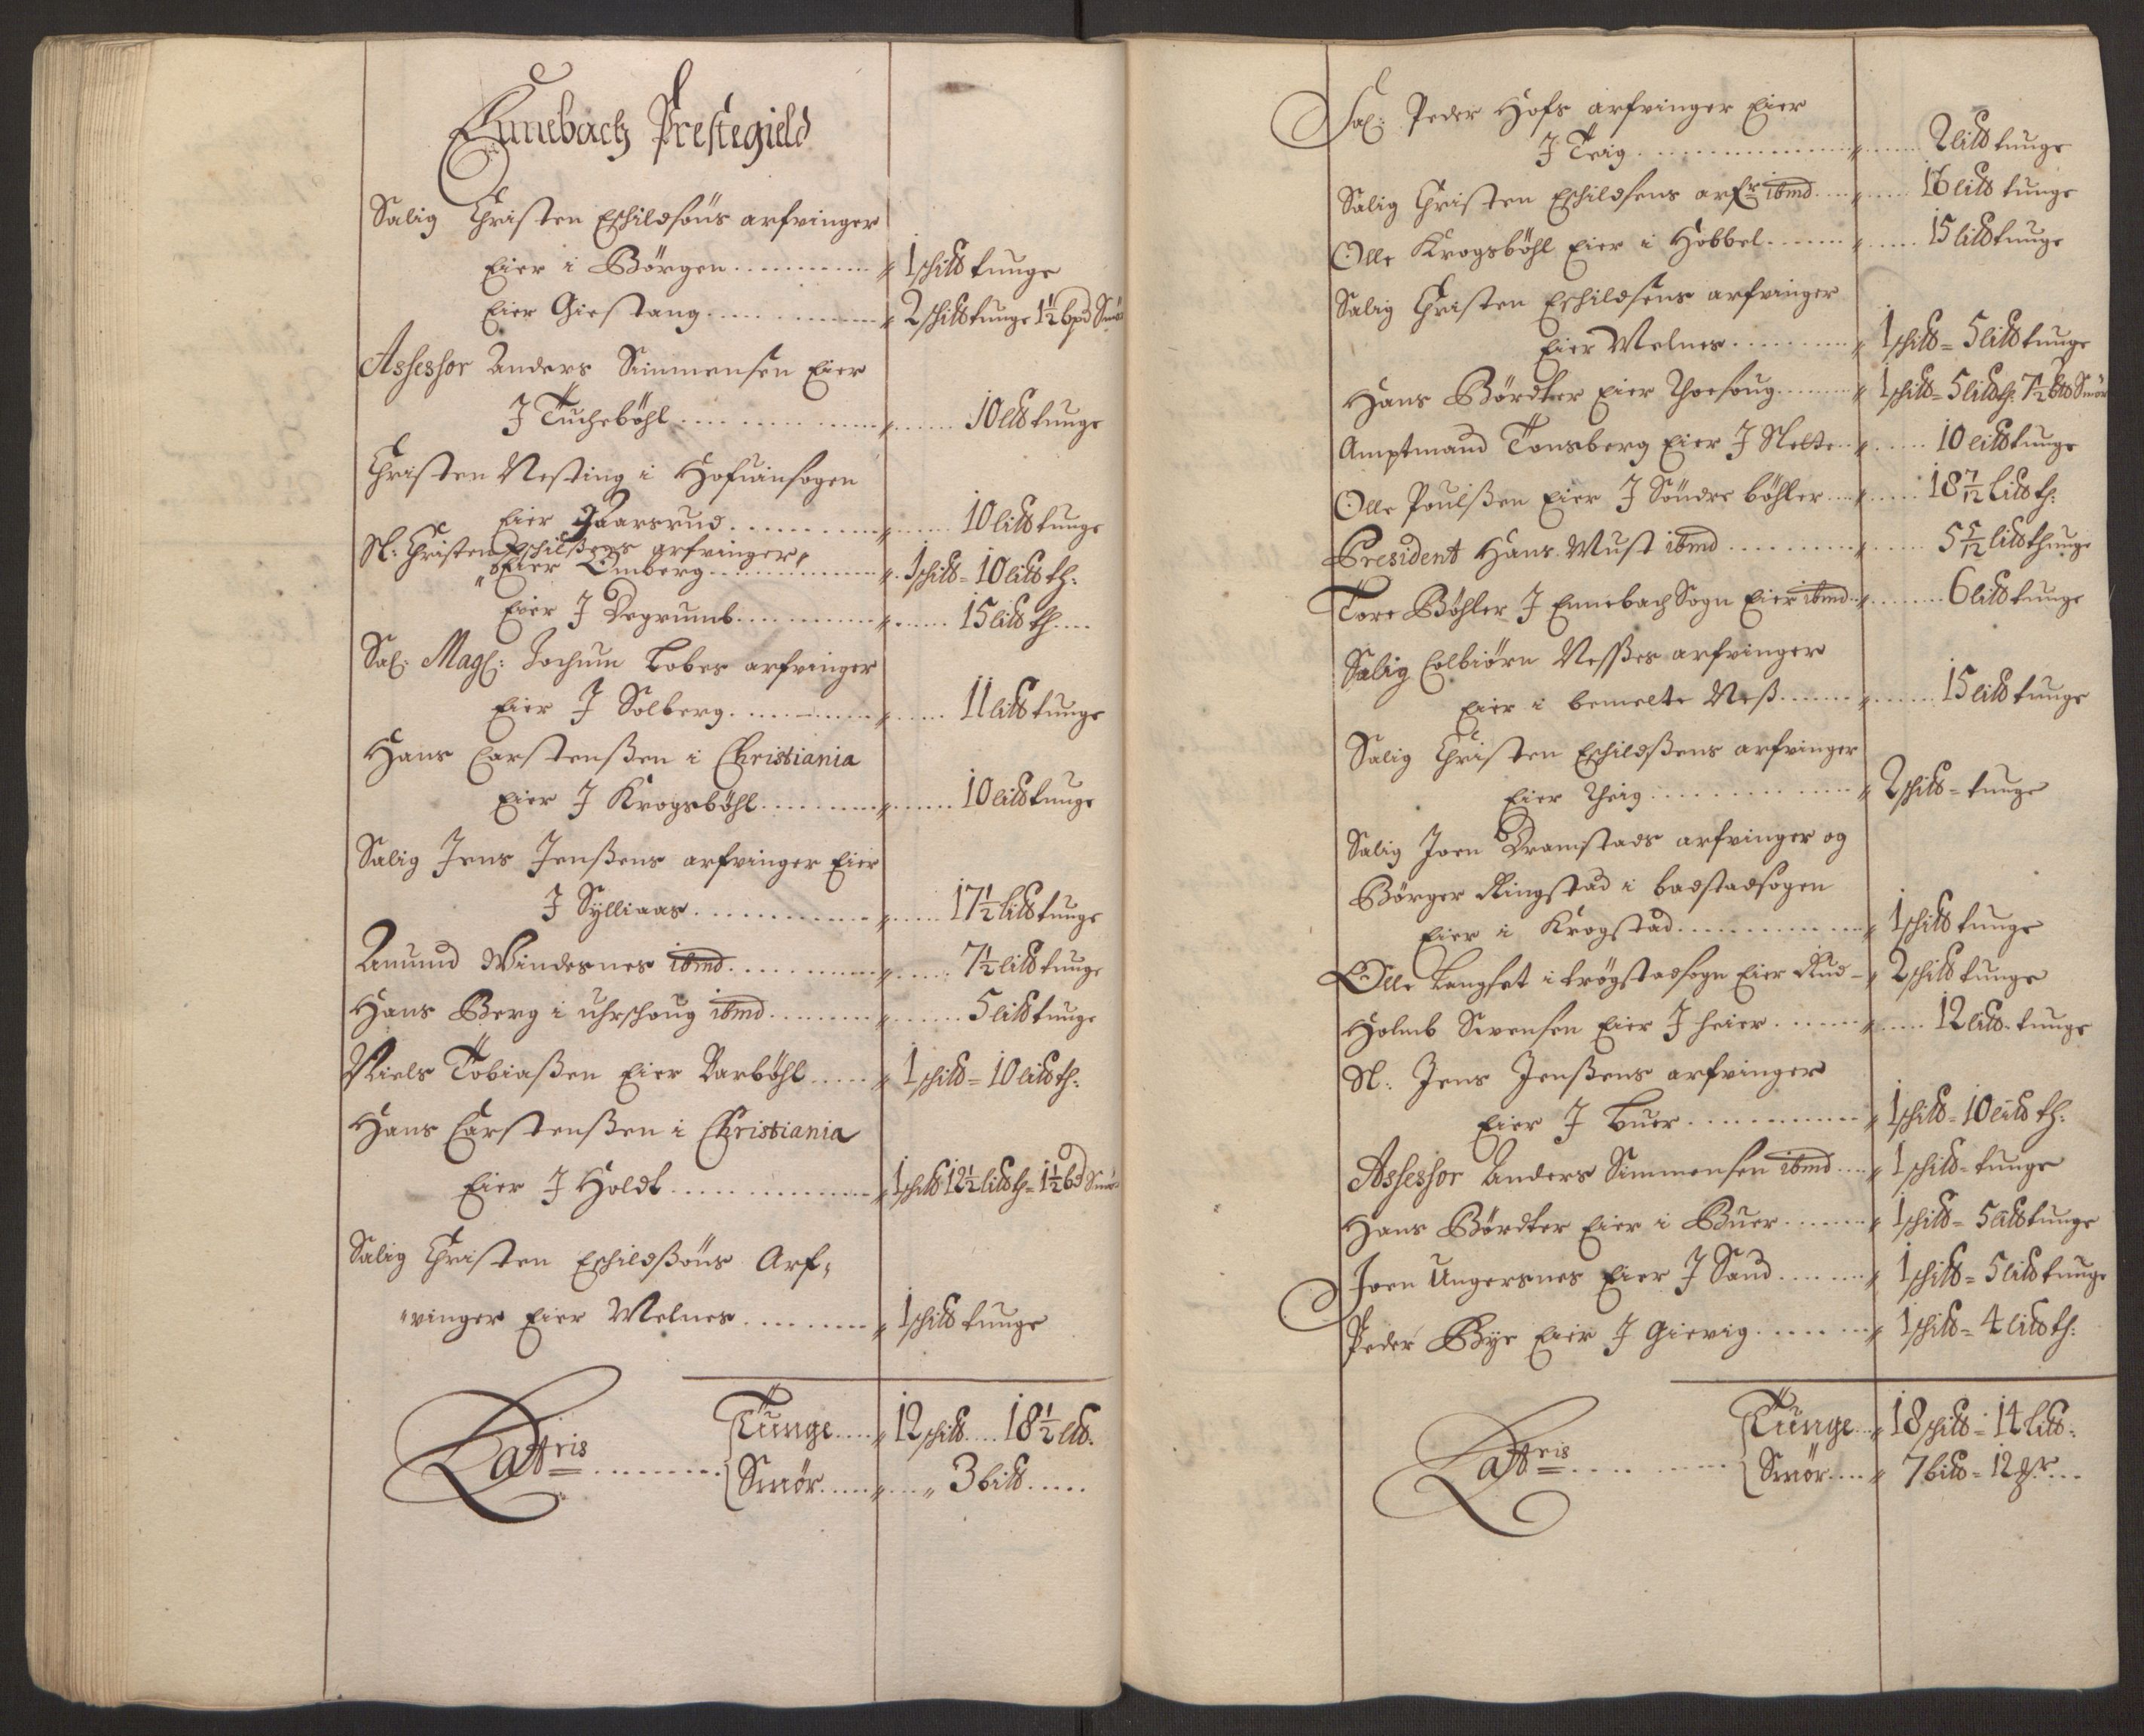 Ennebach Prestegield
Salig Christen Eschildsøns arfvinger
Eier i Börgen " 1 schllb tunge
Eier Giestang " 2 schllb tunge 1½ bpd Smör
Assessor Anders Simmensen Eier
J Tuchebøhl " 10 llb tunge
Christen Nesting i Hofuinsogen
Eier Haarsrud " 10 lillb tunge
Sl: Christen Eschilßens arfvinger
Eier Omberg " 1 schllb = 10 lillb th:
Eier J Degrumb " 15 lillb th
Sal: Magl: Jochum Lobes arfvinger
Eier J Solberg " 11 lillb tunge
Hans Carstenßen i Christiania
Eier J Krogsbøhl " 10 lillb tunge
Salig Jens Jenßens arfvinger Eier
J Sylliaas " 17½ lillb tunge
Amund Windesnes ibmd " 7½ lillb tunge
Hans Berg i uhrschoug ibmd " 5 lillb tunge
Niels Tobiaßen Eier Barbøhl " 1 schllb = 10 lillb th:
Hans Carstenßen i Christiania
Eier J Holdt " 1 schllb 12½ lillb th = 1½ bd Smör
Salig Christen Eschildßøns Arf,
"vinger Eier Melnes " 1 schllb tunge
Lattris Tunge " 12 schllb 18½ llb.
Smör " " 3 billb
Sal: Peder Hofs arfvinger Eier
J Teig " 2 lillb tunge
Salig Christen Eschildsens arfr ibmd " 16 lillb tunge
Olle Krogsbøhl Eier i Hobbel " 15 lillb tunge
Salig Christen Eschildsens arfvinger
Eier Melnes " 1 schllb = 5 lillb tunge
Hans Børdker Eier Thoesoug " 1 schllb = 5 lillb th: 7½ bllb Smör
Amptmand Tonsberg Eier J Slette " 10 lillb tunge
Olle Poulßen Eier J Söndre bøhler " 18 7/12 lillb th:
President Hans Must ibmd " 5 5/12 lillb thunge
Tore Bøhler J Ennebach Sogn Eier ibmd " 6 lillb tunge
Salig Colbiørn Neßes arfvinger
Eier i bemelte Neß " 15 lillb tunge
Salig Christen Eschildßens arfvinger
Eier Theig " 2 schllb = tunge
Salig Joen Dramstads arfvinger og
Børger Ringstad i badstadsogen
Eier i Krogstad " 1 schllb tunge
Olle Langset i trøgstadsogn Eier Rud " 2 schllb tunge
Holmb Svensen Eier J heier " 12 lillb tunge
Sl: Jens Jenßens arfvinger
Eier J Buer " 1 schllb = 10 lillb th:
Assessor Anders Simmensen ibmd " 1 schllb = tunge
Hans Børdker Eier i Buer " 1 schllb = 5 lillb tunge
Joen Ungersnes Eier J Sand " 1 schllb = 5 lillb tunge
Peder Bye Eier J Gievig " 1 schllb = 4 lillb th:
Lattris Tunge " 18 schllb = 14 lillb:
Smör " 7 billb = 12